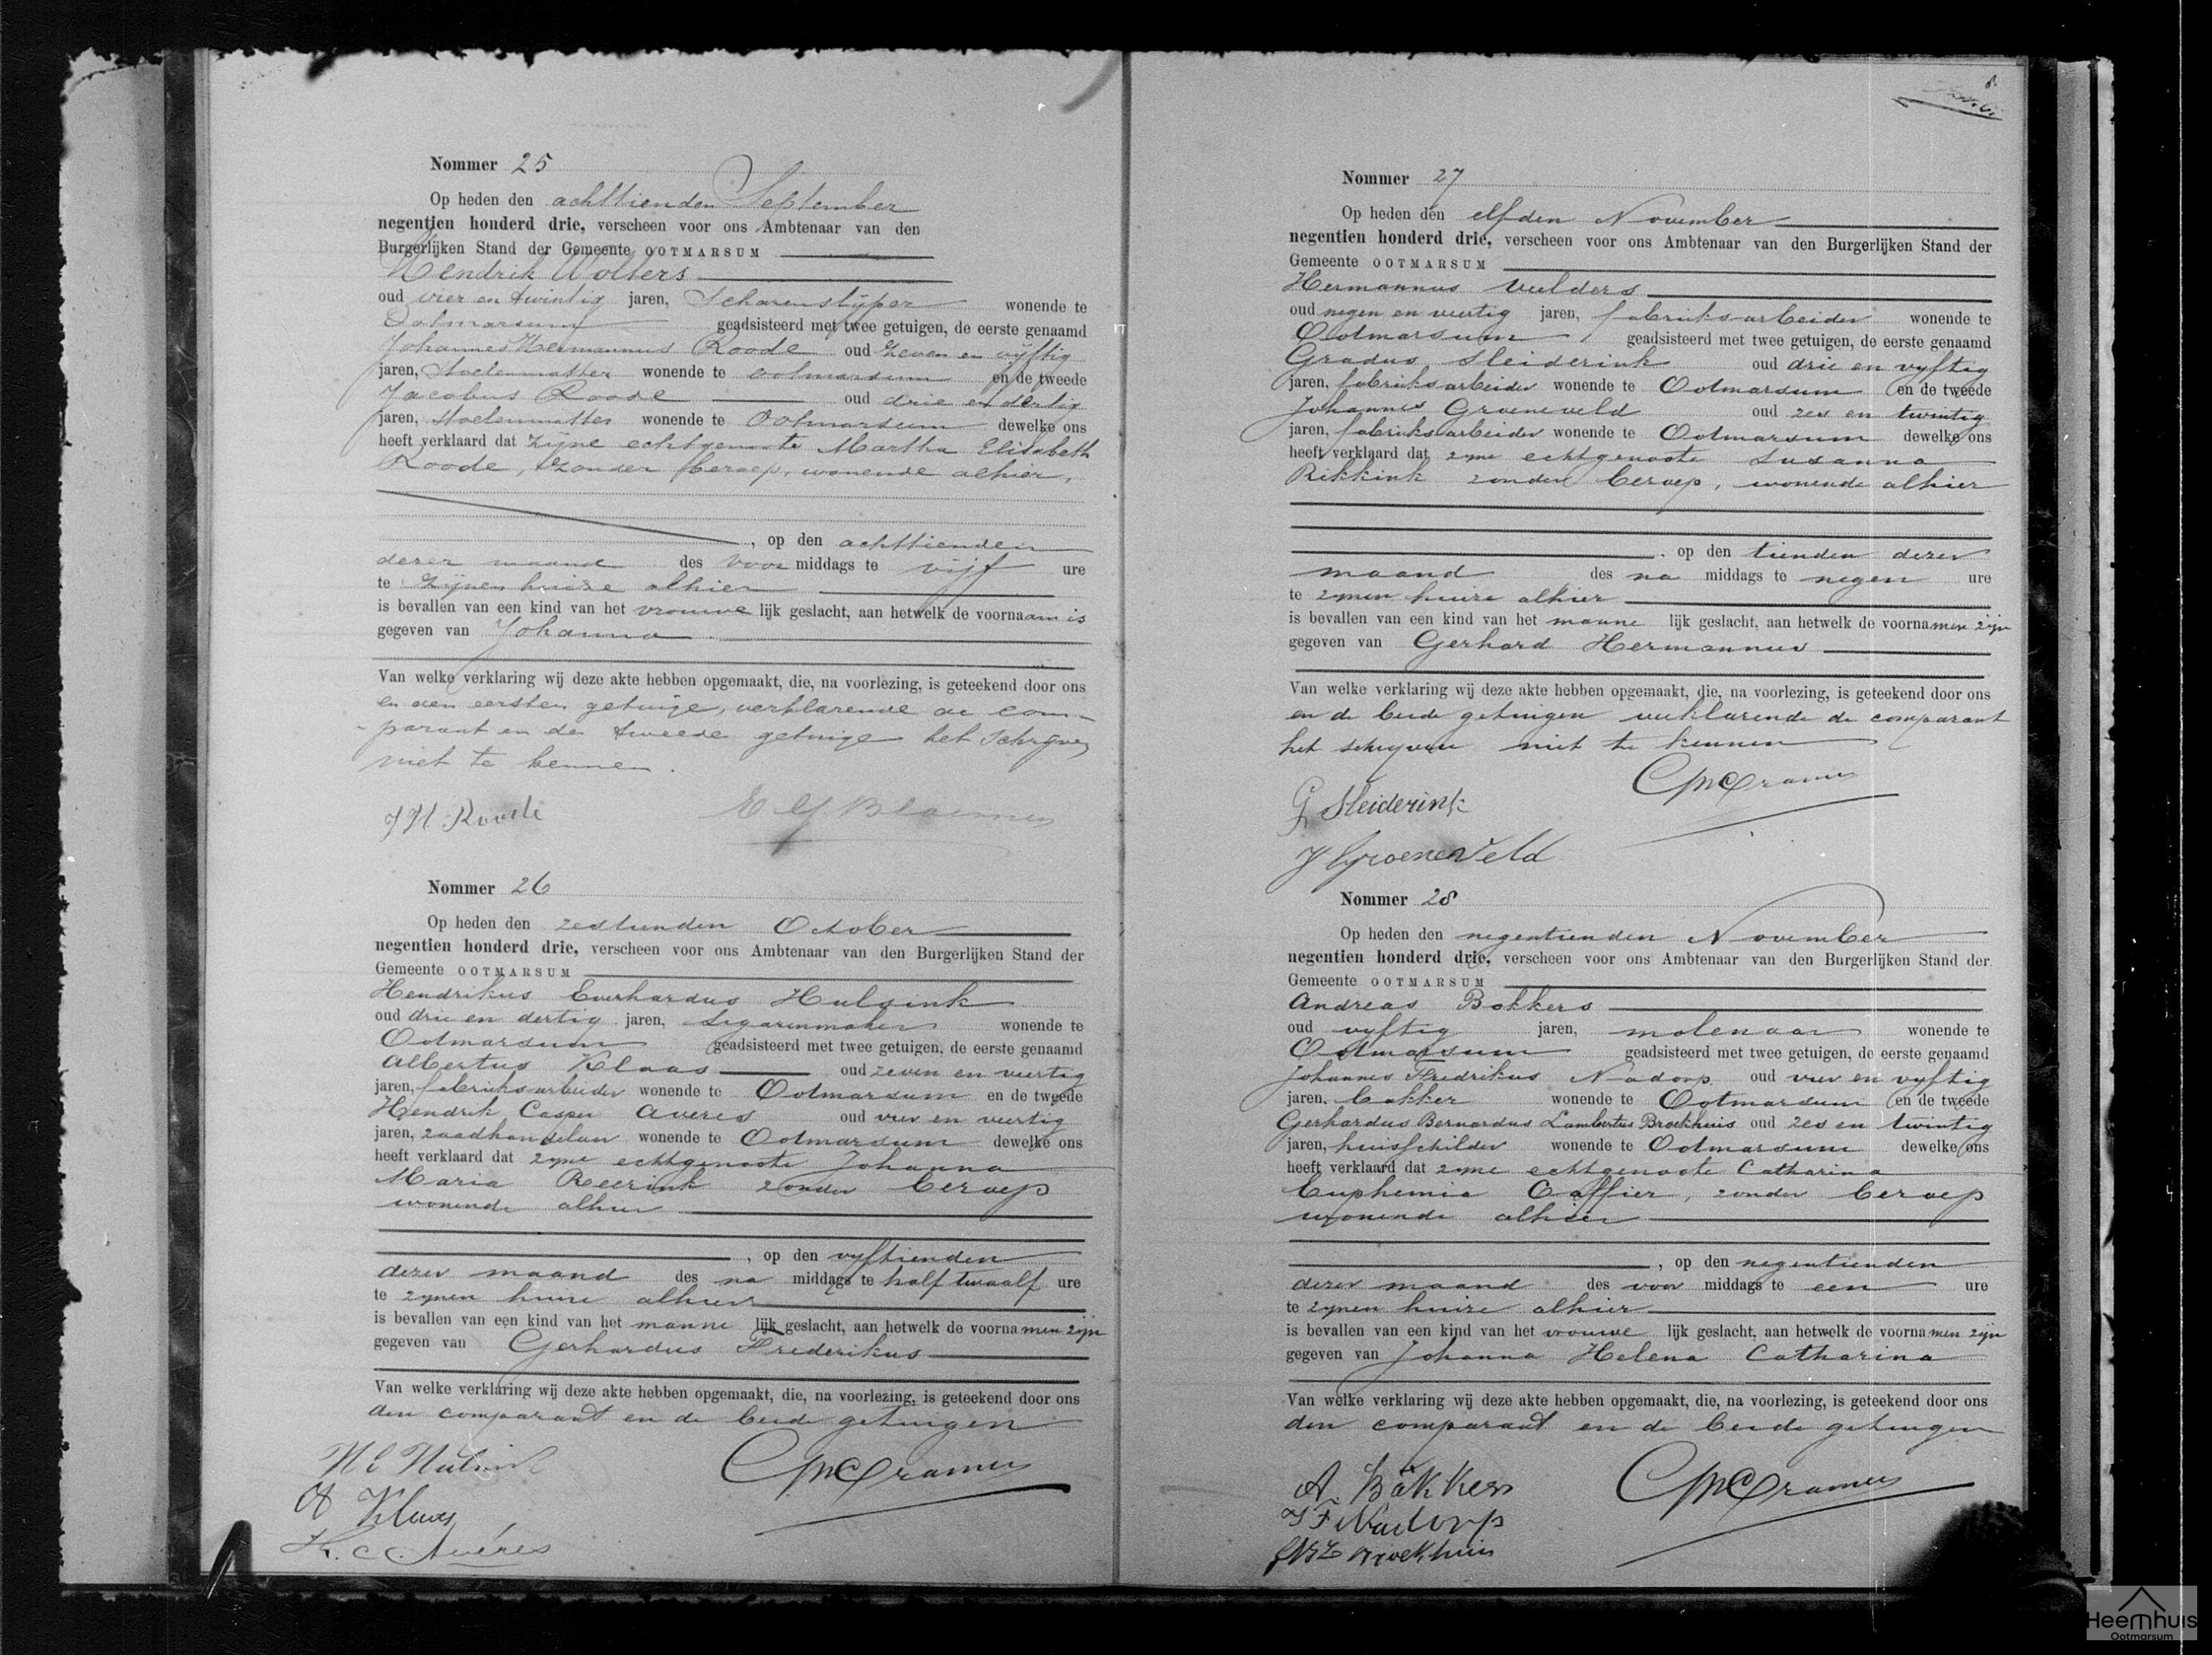 Nommer 25
Op heden den achttienden September
negentien honderd drie, verscheen voor ons Ambtenaar van den
Burgerlijken Stand der Gemeente OOTMARSUM
Hendrik Wolters
oud vier en twintig jaren, Scharenslijper wonende te
Ootmarsum geadsisteerd met twee getuigen, de eerste genaamd
Johannes Hermannus Roode oud zeven en vijftig
jaren, Stoelenmatter wonende te Ootmarsum en de tweede
Jacobus Roode oud drie en dertig
jaren, Stoelenmatter wonende te Ootmarsum dewelke ons
heeft verklaard dat zijne echtgenoote Martha Elisabeth
Roode, zonder beroep, wonende alhier,
, op den achttienden
dezer maand des voor middags te vijf ure
te zijnen huize alhier
is bevallen van een kind van het vrouwe lijk geslacht, aan hetwelk de voornaam is
gegeven van Johanna
Van welke verklaring wij deze akte hebben opgemaakt, die, na voorlezing, is geteekend door ons
en den eersten getuige, verklarende de com-
parant en de tweede getuige het schrijven
niet te kennen.
J H. Roode
Nommer 26
Op heden den zestienden October
negentien honderd drie, verscheen voor ons Ambtenaar van den Burgerlijken Stand der
Gemeente OOTMARSUM
Hendrikus Everhardus Hulsink
oud drie en dertig jaren, Sigarenmaker wonende te
Ootmarsum geadsisteerd met twee getuigen, de eerste genaamd
Albertus Klaas oud zeven en veertig
jaren, fabrieksarbeider wonende te Ootmarsum en de tweede
Hendrik Casper Averes oud vier en veertig
jaren, zaadhandelaar wonende te Ootmarsum dewelke ons
heeft verklaard dat zyne echtgenoote Johanna
Maria Reerink zonder beroep
wonende alhier
, op den vyftienden
dezer maand des na middags te half twaalf ure
te zynen huize alhier
is bevallen van een kind van het manne lijk geslacht, aan hetwelk de voornamen zijn
gegeven van Gerhardus Frederikus
Van welke verklaring wij deze akte hebben opgemaakt, die, na voorlezing, is geteekend door ons
den comparant en de beide getuigen
H E Hulsink
A Klaas
H. C. Avéres
Cramer
Nommer 27
Op heden den elfden November
negentien honderd drie, verscheen voor ons Ambtenaar van den Burgerlijken Stand der
Gemeente OOTMARSUM
Hermannus Velders
oud negen en veertig jaren, fabrieksarbeider wonende te
Ootmarsum geadsisteerd met twee getuigen, de eerste genaamd
Gradus Sleiderink oud drie en vyftig
jaren, fabrieksarbeider wonende te Ootmarsum en de tweede
Johannes Groeneveld oud zes en twintig
jaren, fabrieksarbeider wonende te Ootmarsum dewelke ons
heeft verklaard dat zyne echtgenoote Susanna
Rikkink zonder beroep, wonende alhier
, op den tienden dezer
maand des na middags te negen ure
te zynen huize alhier
is bevallen van een kind van het manne lijk geslacht, aan hetwelk de voornamen zijn
gegeven van Gerhard Hermannus
Van welke verklaring wij deze akte hebben opgemaakt, die, na voorlezing, is geteekend door ons
en de beide getuigen verklarende de comparant
het schryven niet te kennen
Cramer
G Sleiderink
J Groeneveld
Nommer 28
Op heden den negentienden November
negentien honderd drie, verscheen voor ons Ambtenaar van den Burgerlijken Stand der
Gemeente OOTMARSUM
Andreas Bokkers
oud vyftig jaren, molenaar wonende te
Ootmarsum geadsisteerd met twee getuigen, de eerste genaamd
Johannes Fredrikus Nadorp oud vier en vyftig
jaren, bakker wonende te Ootmarsum en de tweede
Gerhardus Bernardus Lambertus Broekhuis oud zes en twintig
jaren, huisschilder wonende te Ootmarsum dewelke ons
heeft verklaard dat zyne echtgenoote Catharina
Euphemia Caffier, zonder beroep
wonende alhier
, op den negentienden
dezer maand des voor middags te een ure
te zynen huize alhier
is bevallen van een kind van het vrouwe lijk geslacht, aan hetwelk de voornamen zijn
gegeven van Johanna Helena Catharina
Van welke verklaring wij deze akte hebben opgemaakt, die, na voorlezing, is geteekend door ons
den comparant en de beide getuigen
A. Bökkers
J F Nadorp
Broekhuis
Cramer
Heemhuis
Ootmarsum